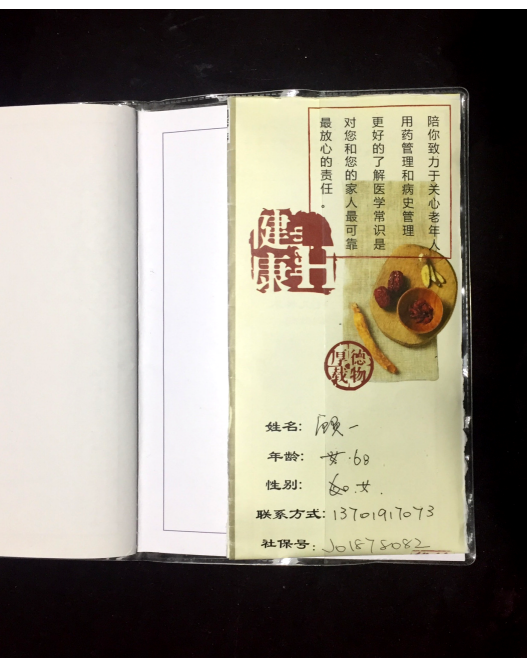 陪你致力于关心老年人
用药管理和病史管理
更好的了解医学常识是
对您和您的家人最可靠
最放心的责任。
健康
H
厚德载物
姓名: 顾一
年龄: 68
性别: 女.
联系方式: 13701917073
社保号: J01878082